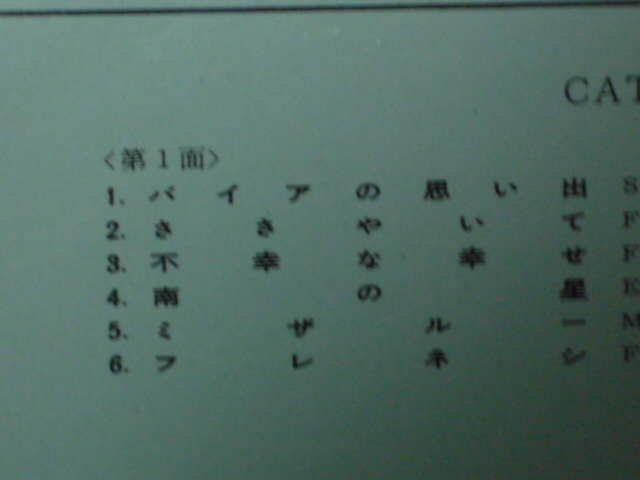 CAT
<第1面>
1. バイアの思い出 S
2. ささやいて F
3. 不幸な幸せ F
4. 南の星 E
5. ミザルー M
6. フレネシ F